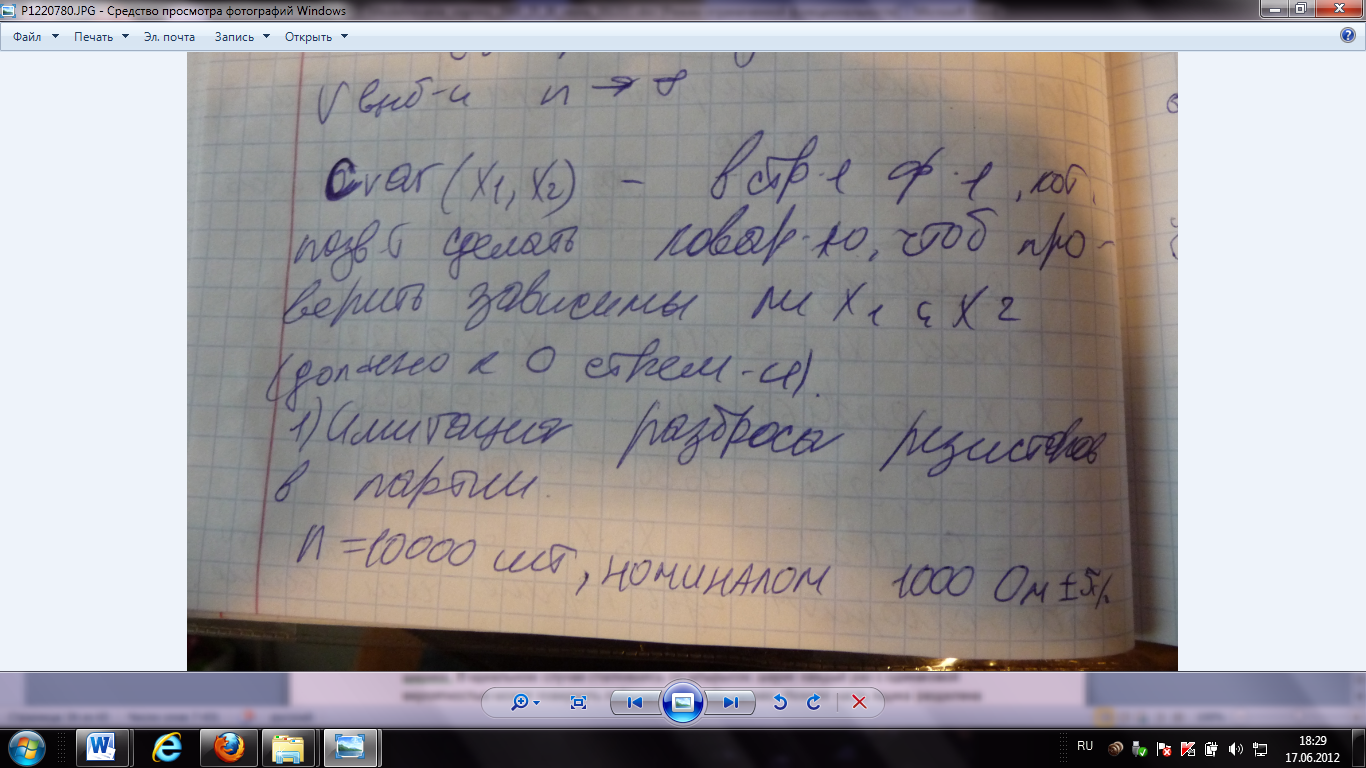 P1220780.JPG - Средство просмотра фотографий Windows
Файл Печать Эл. почта Запись Открыть
n → ∞
cvar(x1, x2) – встр-я ф-я, кот.
позв-т сделать ковар-ю, чтоб про-
верить зависимы ли x1 и x2
(должно к 0 стрем-ся).
1) Имитация разброса резисторов
в партии.
n =10000 шт, номиналом 1000 Ом ±5%
RU
18:29
17.06.2012